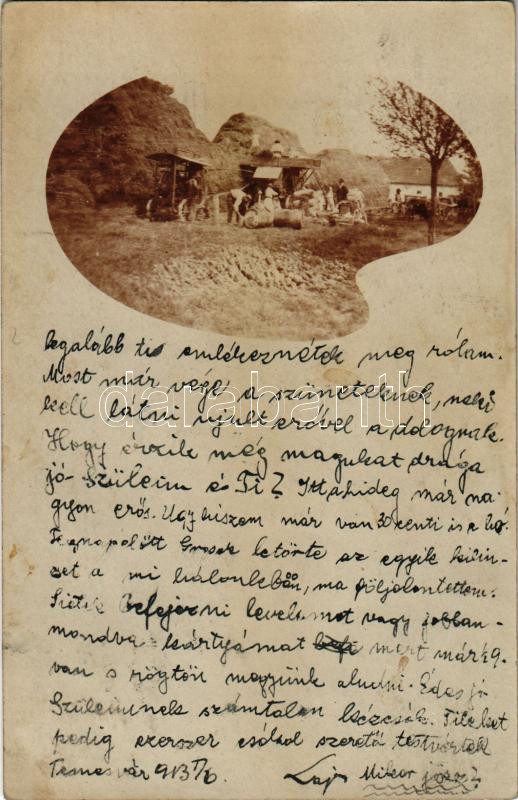 darabanth
legalább ti emlékeznétek meg rólam.
Most már vége a szüneteknek, neki
kell látni ujult erővel a dolognak.
Hogy érzik még magukat drága
jó Szüleim és Ti? Itt a hideg már na-
gyon erős. Ugy hiszem már van 30 centi is a hó.
Tegnapelőtt letörte az egyik kilin-
cset a mi hálónkban, ma följelentettem.
Sietek befejezni levelemet vagy jobban-
mondva kártyámat mert már ¾9
van s rögtön megyünk aludni. Édes jó
Szüleimnek számtalan kézcsók. Titeket
pedig ezerszer csókol szerető testvértek
Temesvár 913 Lajos Mikor jössz?